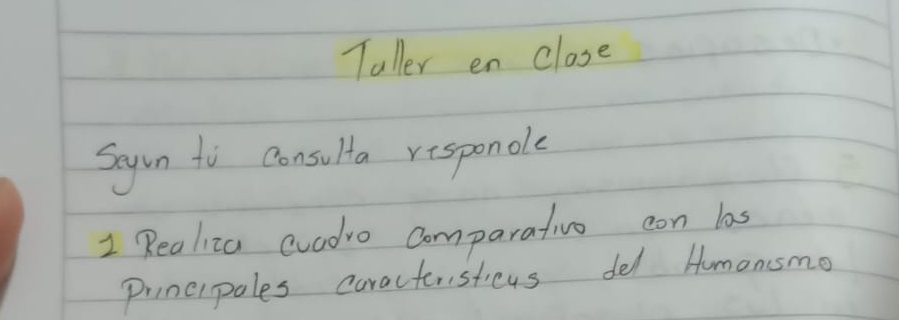 Taller en Clase
Segun tú consulta responde
1 Realiza cuadro comparativo con las
Principales caracteristicas del Humanismo